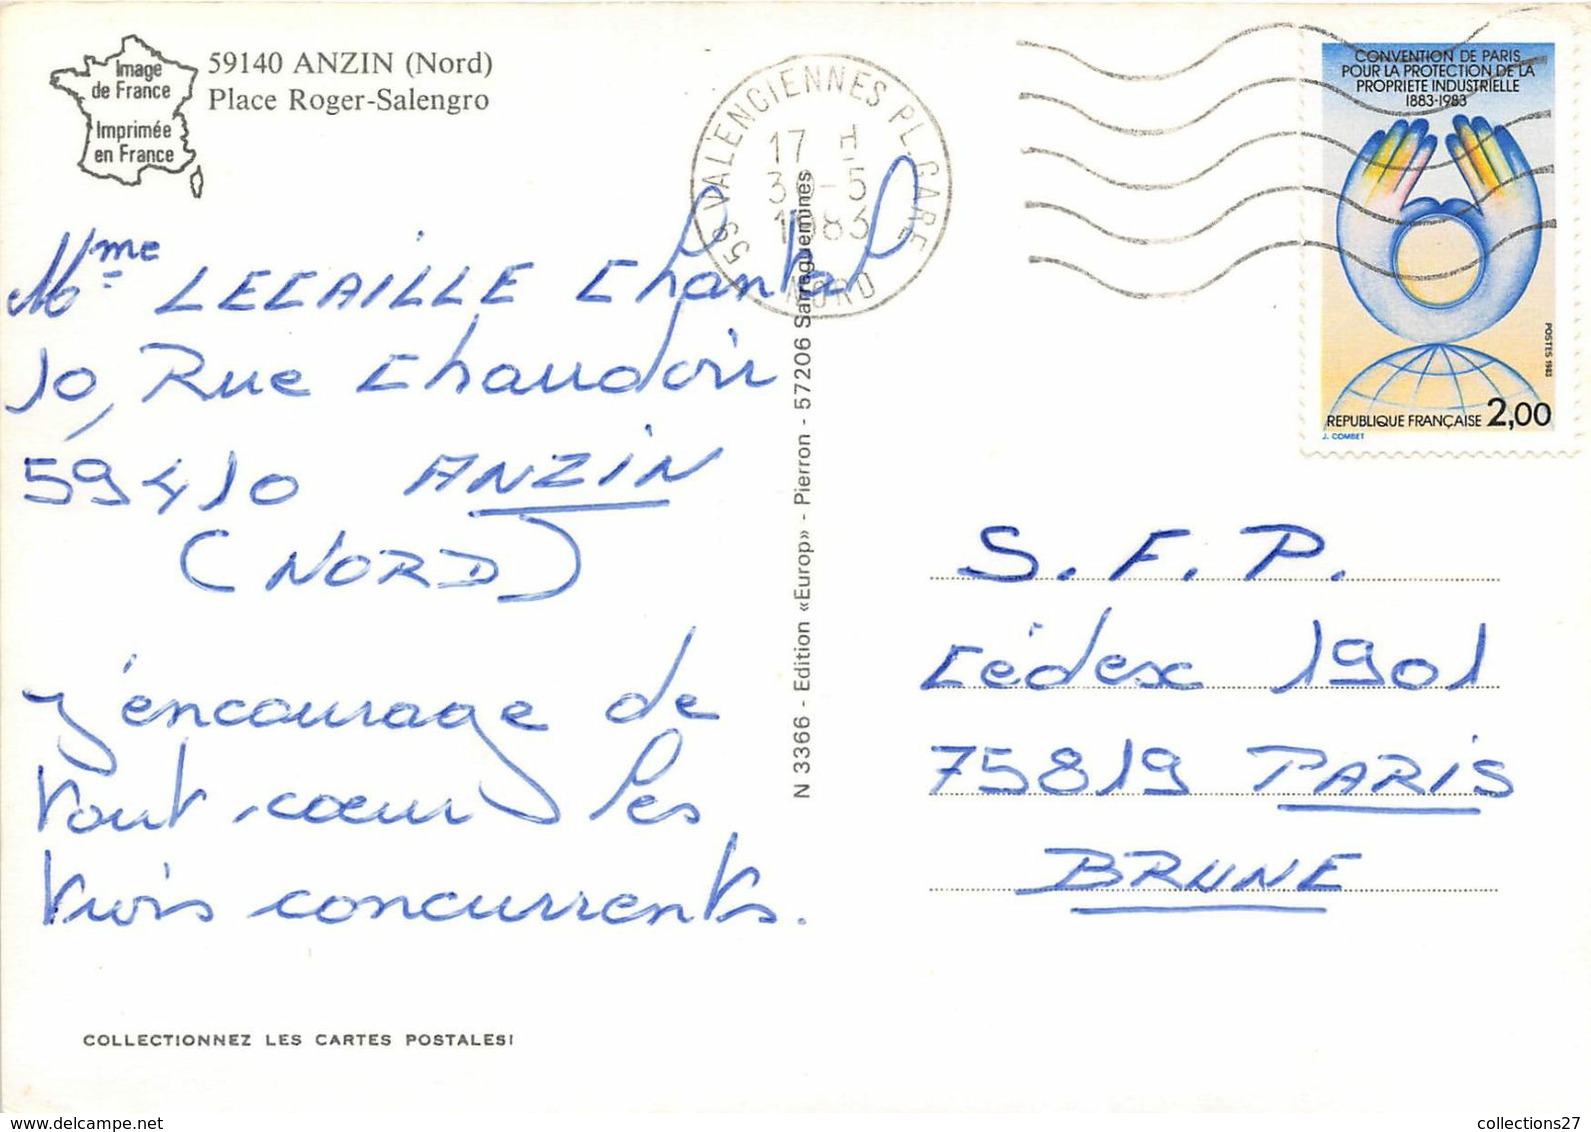 Image
de France
Imprimée
en France
59140 ANZIN (Nord)
Place Roger-Salengro
59 VALENCIENNES PL. GARE
17 H
30-5
1983
NORD
CONVENTION DE PARIS
POUR LA PROTECTION DE LA
PROPRIETE INDUSTRIELLE
1883-1983
POSTES 1983
REPUBLIQUE FRANÇAISE 2,00
J. COMBET
Mme LECAILLE Chantal
10, Rue Chaudoir
59410 ANZIN
(NORD)
J'encourage de
tout cœur les
trois concurrents.
N 3366 - Edition «Europ» - Pierron - 57206 Sarreguemines
S.F.P.
Cédex 1901
75819 PARIS
BRUNE
COLLECTIONNEZ LES CARTES POSTALES!
collections27